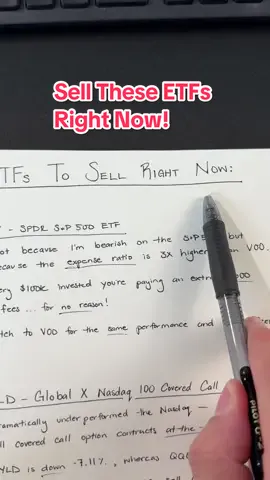 Sell These ETFs
Right Now!
TFs To Sell Right Now:
- SPDR S&P 500 ETF
not because I'm bearish on the S&P but
because the expense ratio is 3x higher than VOO.
every $100k invested you're paying an extra
fees... for no reason!
switch to VOO for the same performance and
YLD - Global X Nasdaq 100 Covered Call
dramatically underperformed the Nasdaq -
ll covered call option contracts at-the-
YLD is down -7.11%, whereas QQ
PILOT G-2